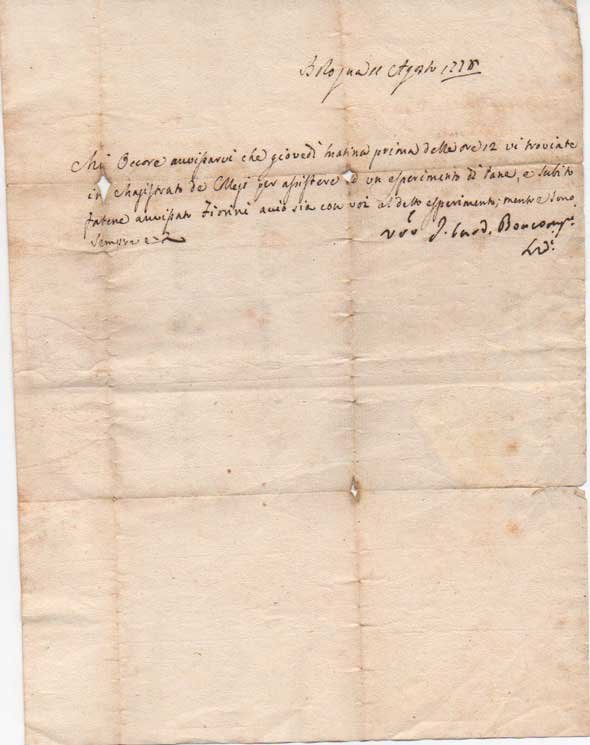 Bologna 11 Agosto 1778
Mi Occore avvisarvi che giovedì matina prima delle ore 12 vi troviate
in Magistrato de Collegi per assistere ad un esperimento di Pane, e subito
fatene avvisato Fiorini acciò sia con voi al detto esperimento; mentre sono
Sempre